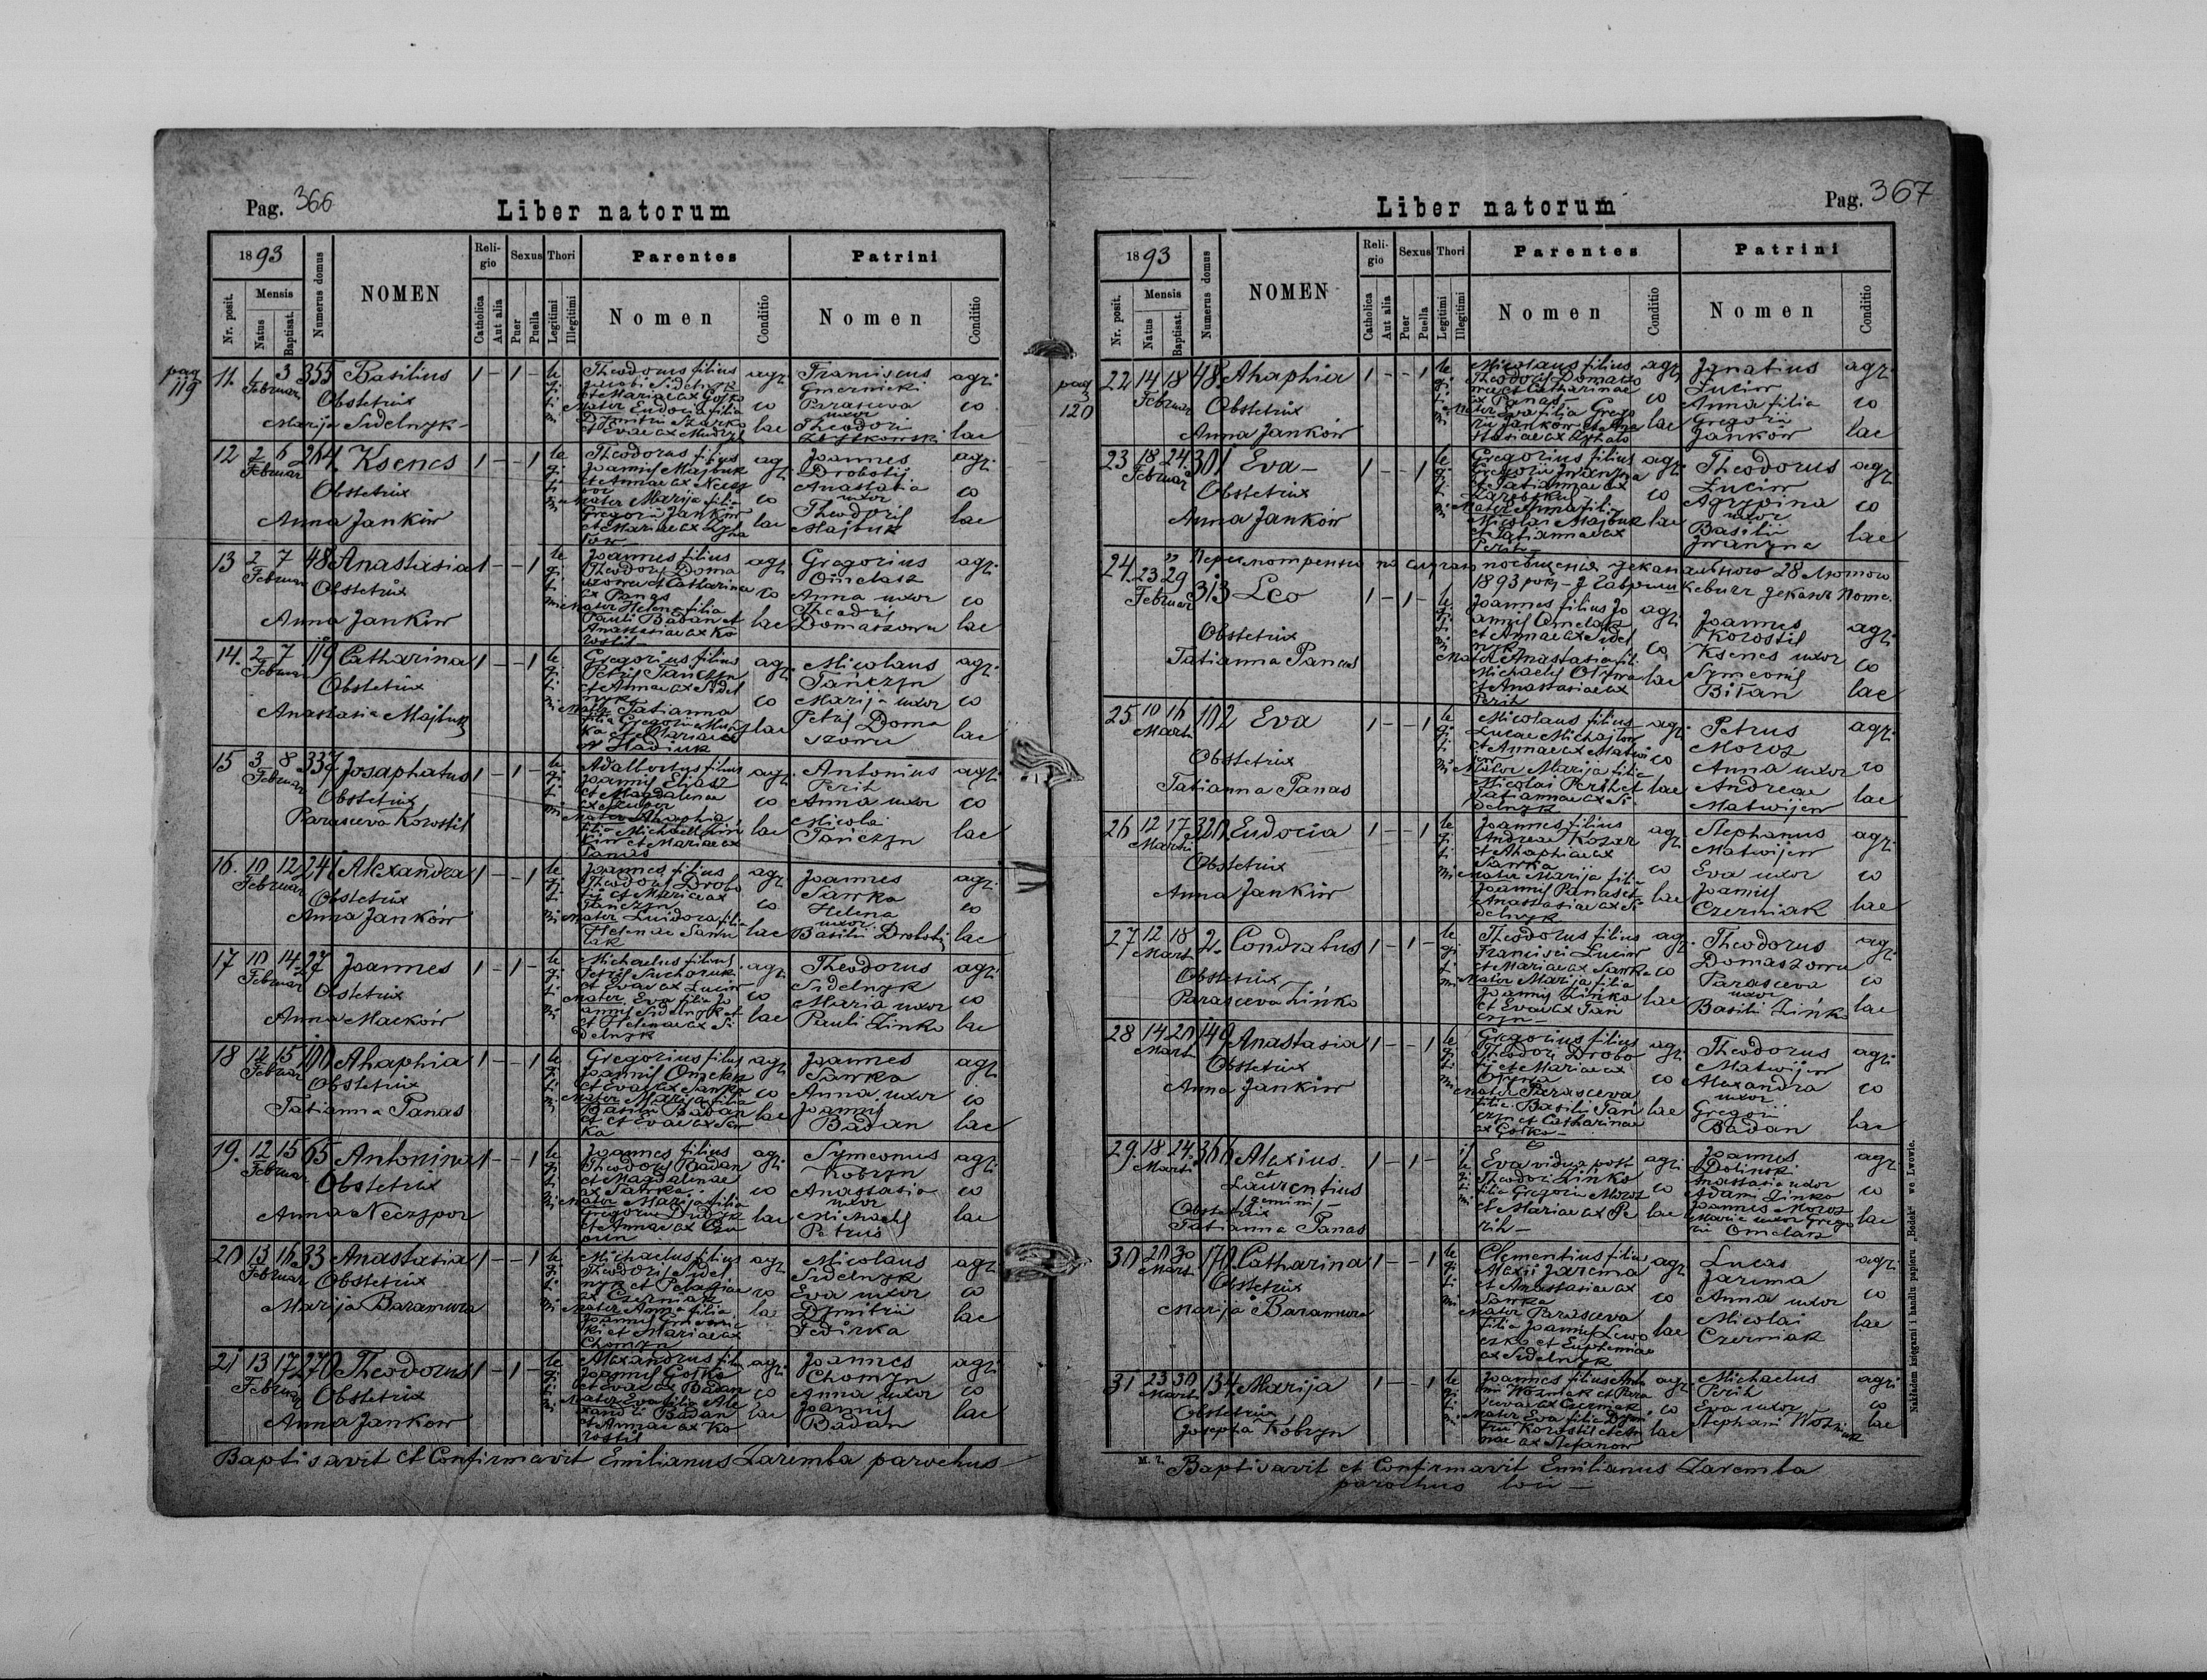 Pag. 366
Liber natorum
1893
Nr. posit.
Mensis
Natus
Baptisat.
Numerus domus
NOMEN
Religio
Catholica
Aut alia
Sexus
Puer
Puella
Thori
Legitimi
Illegitimi
Parentes
Nomen
Conditio
Patrini
Nomen
Conditio
pag 119
11. 1 3 Februar 355 Basilius 1 - 1 -
Obstetrix
Marija Sidelnyk
Theodorus filius
Jacobi Sidelnyk
et Mariae ex Gojko
Mater Eudocia filia
Dymitrii Szarko
et Evae ex Mudryk
agricolae
Franciscus
Gmernicki
Parasceva
uxor
Theodori
agricolae
12 2 6 Februar 264 Ksenes 1 - - 1
Obstetrix
Anna Jankiw
Theodorus filius
Joannis Majbuk
et Annae ex Neczy
por
Mater Marija filia
Gregorii Jankiw
et Mariae ex
agricolae
Joannes
Drobotij
Anastasia
uxor
Theodori
Majbuk
agricolae
13 2 7 Februar 48 Anastasia 1 - - 1
Obstetrix
Anna Jankiw
Joannes filius
Theodori Doma
szowu et Catharinae
ex Panas
Mater Helena filia
Pauli Badan et
Anastasiae ex Ko
rostil
agricolae
Gregorius
Omelasz
Anna uxor
Theodori
Domaszowu
agricolae
14. 2 7 Februar 119 Catharina 1 - - 1
Obstetrix
Anastasia Majbuk
Gregorius filius
Petri Tanczyn
et Annae ex Sidel
nyk
Mater Tatianna
filia Gregorii
et Mariae
ex Hadiuk
agricolae
Nicolaus
Tańczyn
Marija uxor
Petri Doma
szowu
agricolae
15 3 8 Februar 337 Josaphatus 1 - 1 -
Obstetrix
Parasceva Korostil
Adalbertus filius
Joannis Eliasz
et Magdalenae
ex Szuper
Mater Ahaphia
filia Michaelis
et Mariae ex
Panas
agricolae
Antonius
Perih
Anna uxor
Nicolai
Tańczyn
agricolae
16. 10 12 Februar 241 Alexandra 1 - - 1
Obstetrix
Anna Janków
Joannes filius
Theodori Drobo
tij et Mariae ex
Tanczyn
Mater Luidora filia
Helenae Sawu
lak
agricolae
Joannes
Sawka
Helena
uxor
Basilii Drobotij
agricolae
17 10 14 Februar 27 Joannes 1 - 1 -
Obstetrix
Anna Maćków
Michaelus filius
Petri Suchoruk
et Evae ex Luciw
Mater Eva filia Jo
annis Sidelnyk et
et Helenae ex Si
delnyk
agricolae
Theodorus
Sidelnyk
Maria uxor
Pauli Zinko
agricolae
18 12 15 Februar 100 Ahaphia 1 - - 1
Obstetrix
Tatianna Panas
Gregorius filius
Joannis Omelasz
et Evae ex Sawka
Mater Marija filia
Basilii Badan
et et Evae ex Saw
ka
agricolae
Joannes
Sawka
Anna uxor
Joannis
Badan
agricolae
19. 12 15 Februar 65 Antonina 1 - - 1
Obstetrix
Anna Neczypor
Joannes filius
Theodori Badan
et Magdalenae
ex Sawka
Mater Marija filia
Gregorii Dudyk
et Annae ex
agricolae
Symeonus
Kobryn
Anastasia
uxor
Michaelis
Petrus
agricolae
20 13 16 Februar 33 Anastasia 1 - - 1
Obstetrix
Marija Baramura
Michaelus filius
Theodori Sidel
nyk et Pelagiae
ex Czerniak
Mater Anna filia
Joannis Gmernic
ki et Mariae ex
Chomyn
agricolae
Nicolaus
Sidelnyk
Eva uxor
Dymitrii
Fedirka
agricolae
21 13 17 Februar 270 Theodorus 1 - 1 -
Obstetrix
Anna Jankow
Alexandrus fil
Joannis Gojko
et Evae ex Badan
Mater Eva filia Ale
xandri Badan
et Annae ex Ko
rostil
agricolae
Joannes
Chomyn
Anna uxor
Joannis
Badan
agricolae
Baptisavit et Confirmavit Emilianus Zaremba parochus
Liber natorum
Pag. 367
1893
Nr. posit.
Mensis
Natus
Baptisat.
Numerus domus
NOMEN
Religio
Catholica
Aut alia
Sexus
Puer
Puella
Thori
Legitimi
Illegitimi
Parentes
Nomen
Conditio
Patrini
Nomen
Conditio
pag 120
22 14 18 Februar 48 Ahaphia 1 - - 1
Obstetrix
Anna Janków
Nicolaus filius
Theodori Domasz
owu et Catharinae
ex Panas
Mater Eva filia Grego
rii Jankow et Ana
stasiae ex
agricolae
Ignatius
Luciw
Anna filia
Gregorii
Janków
agricolae
23 18 24 Februar 301 Eva
Obstetrix
Anna Janków
Gregorius filius
Gregorii Iwanyna
et Tatiannae ex
Mater Anna filia
Nicolai Majbuk
et Tatiannae ex
Perih
agricolae
Theodorus
Luciw
Agrypina
uxor
Basilii
Iwanyna
agricolae
28 Лютого
1893 року
24 23 29 Februar 313 Leo 1 - 1 -
Obstetrix
Tatianna Panas
Joannes filius Jo
annis Omelasz
et Annae ex Sidel
nyk
Mater Anastasia fil.
Michaelis
et Anastasiae ex
Perih
agricolae
Joannes
Korostil
Ksenes uxor
Symeonis
Bilan
agricolae
25 10 16 Marti 102 Eva 1 - - 1
Obstetrix
Tatianna Panas
Nicolaus filius
Lucae Michajlow
et Annae ex Matwi
jew
Mater Marija filia
Nicolai Perih et
Tatiannae ex Si
delnyk
agricolae
Petrus
Moroz
Anna uxor
Andreae
Matwijew
agricolae
26 12 17 Martii 320 Eudocia 1 - - 1
Obstetrix
Anna Jankiw
Joannes filius
Andreae Kozar
et Ahaphiae ex
Sawka
Mater Marija filia
Joannis Panas et
Anastasiae ex Si
delnyk
agricolae
Stephanus
Matwijew
Eva uxor
Joannis
Czerniak
agricolae
27 12 18 Mart 2. Condratus 1 - 1 -
Obstetrix
Parasceva Zińko
Theodorus filius
Francisci Luciw
et Mariae ex Sawka
Mater Marija filia
Joannis Zińko
et Evae ex Tan
czyn
agricolae
Theodorus
Domaszowu
Parasceva
uxor
Basilii Zińko
agricolae
28 14 20 Mart 149 Anastasia 1 - - 1
Obstetrix
Anna Jankiw
Gregorius filius
Theodori Drobo
tij et Mariae ex
Mater Parasceva
filia Basilii Tań
czyn et Catharinae
ex Gojko
agricolae
Theodorus
Matwijew
Alexandra
uxor
Gregorii
Badan
agricolae
29. 18 24 Marti 366 Alexius 1 - 1 -
et
Laurentius
gemini
Obstetrix
Tatianna Panas
Eva vidua post
Theodori Zinko
filia Gregorii Moroz
et Mariae ex Pe
rih
agricolae
Joannes
Dolinski
Anastasia uxor
Adami Zinko
Joannes Moroz
Maria uxor Grego
rii Omelasz
agricolae
30 20 30 Mart 170 Catharina 1 - - 1
Obstetrix
Marija Baramura
Clementius filius
Alexii Jarema
et Anastasiae ex
Sawka
Mater Parasceva
filia Joannis Lewo
czko et Euphemiae
ex Sidelnyk
agricolae
Lucas
Jarema
Anna uxor
Nicolai
Czerniak
agricolae
31 23 30 Mart 134 Marija 1 - - 1
Obstetrix
Josepha Kobryn
Joannes filius Anto
nii Wozniak et Para
scevae ex Czerniak
Mater Eva filia Dymi
trii Korostil et An
nae ex Stefanow
agricolae
Michaelus
Perih
Eva uxor
Stephani Wozniak
agricolae
M. 7.
Baptisavit et Confirmavit Emilianus Zaremba
parochus loci
Nakładem księgarni i handlu papieru „Bodek” we Lwowie.